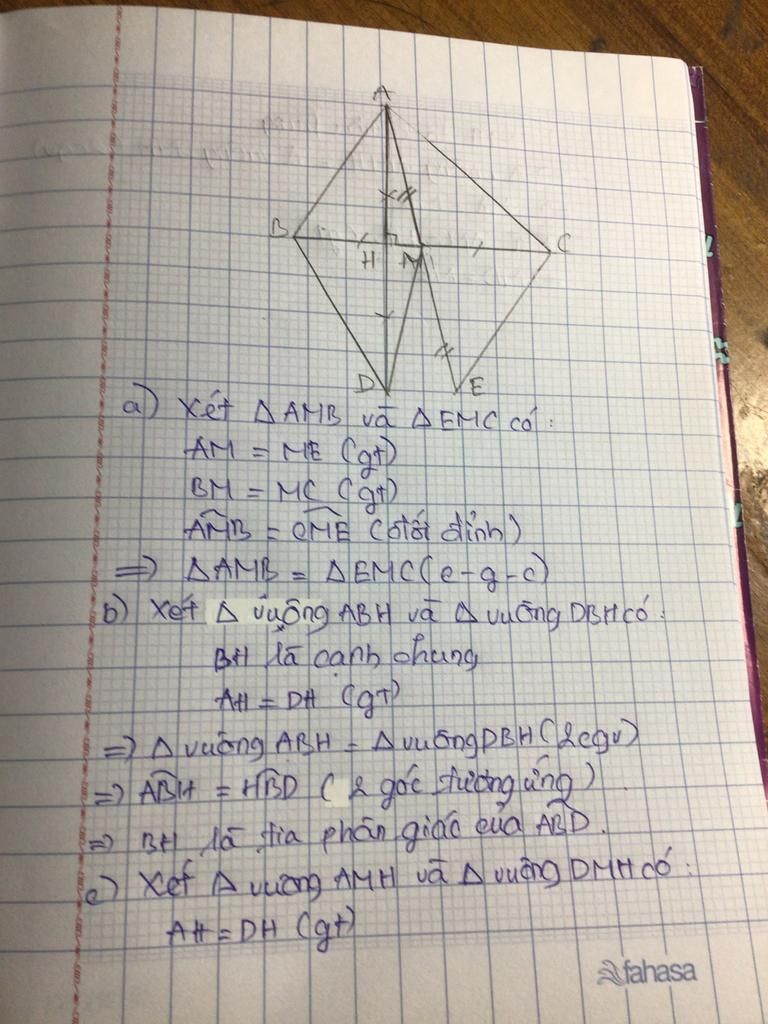 A
B
H
M
C
D
E
a) Xét ΔAMB và ΔEMC có:
AM = ME (gt)
BM = MC (gt)
AMB = CME (đối đỉnh)
=> ΔAMB = ΔEMC (c-g-c)
b) Xét Δ vuông ABH và Δ vuông DBH có:
BH là cạnh chung
AH = DH (gt)
=> Δ vuông ABH = Δ vuông DBH (2cgv)
=> ABH = HBD (2 góc tương ứng)
=> BH là tia phân giác của ABD.
c) Xét Δ vuông AMH và Δ vuông DMH có:
AH = DH (gt)
fahasa